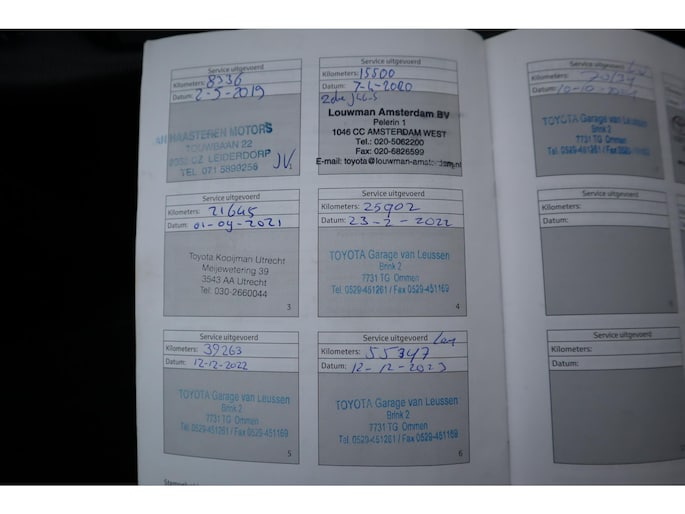 Service uitgevoerd
Kilometers: 8336
Datum: 2-5-2019
HAASTEREN MOTORS
TOUWBAAN 22
LEIDERDORP
TEL. 071 5899258
Service uitgevoerd
Kilometers: 15500
Datum: 7-4-2020
Louwman Amsterdam BV
Pelerin 1
1046 CC AMSTERDAM WEST
Tel.: 020-5062200
Fax: 020-6826599
E-mail: toyota@louwman-amsterdam.nl
Service uitgevoerd
Kilometers: 21645
Datum: 01-04-2021
Toyota Kooijman Utrecht
Meijewetering 39
3543 AA Utrecht
Tel: 030-2660044
3
Service uitgevoerd
Kilometers: 25902
Datum: 23-2-2022
TOYOTA Garage van Leussen
Brink 2
7731 TG Ommen
Tel. 0529-451261 / Fax 0529-451169
4
Service uitgevoerd
Kilometers: 39263
Datum: 12-12-2022
TOYOTA Garage van Leussen
Brink 2
7731 TG Ommen
Tel. 0529-451261 / Fax 0529-451169
5
Service uitgevoerd
Kilometers: 55347
Datum: 12-12-2023
TOYOTA Garage van Leussen
Brink 2
7731 TG Ommen
Tel. 0529-451261 / Fax 0529-451169
6
Service uitgevoerd
Kilometers:
Datum:
TOYOTA Garage van Leussen
Brink 2
7731 TG Ommen
Tel. 0529-451261 / Fax 0529-451169
Service uitgevoerd
Kilometers:
Datum:
Service uitgevoerd
Kilometers:
Datum: